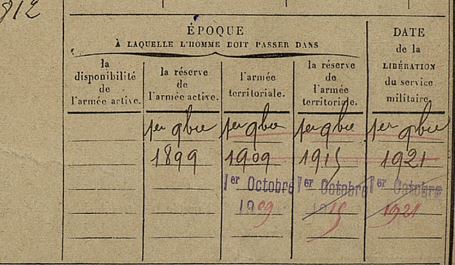 812
ÉPOQUE
À LAQUELLE L'HOMME DOIT PASSER DANS
DATE
de la
LIBÉRATION
du service
militaire.
la
disponibilité
de
l'armée active.
la réserve
de
l'armée active.
l'armée
territoriale.
la réserve
de
l'armée
territoriale.
1er 9bre 1er 9bre 1er 9bre 1er 9bre
1899 1909 1915 1921
1er Octobre 1er Octobre 1er Octobre
1909 1915 1921